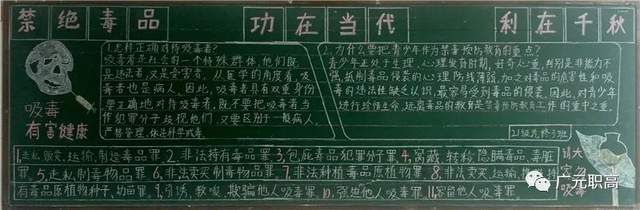 禁绝毒品 功在当代 利在千秋
吸毒
有害健康
1.怎样正确对待吸毒者?
吸毒者是社会的一个特殊群体,他们既
是违法者,又是受害者。从医学的角度看,吸
毒者也是病人。因此,吸毒者具有双重身份
要正确地对待吸毒者,既不要把吸毒者当
作犯罪分子歧视他们,又要区别于一般病人,
严格管理,依法科学戒毒。
2.为什么要把青少年作为禁毒预防教育的重点?
青少年正处于生理、心理发育时期,好奇心重,判别是非能力不
强,抵制毒品侵袭的心理防线薄弱,加之对毒品的危害性和吸
毒的违法性缺乏认识,最容易受到毒品的侵袭。因此,对青少年
进行珍惜生命、远离毒品的教育是禁毒预防教育工作的重中之重。
21级
班
1.走私、贩卖、运输、制造毒品罪 2.非法持有毒品罪 3.包庇毒品犯罪分子罪 4.窝藏、转移、隐瞒毒品、毒赃
罪 5.走私制毒物品罪 6.非法买卖制毒物品罪 7.非法种植毒品原植物罪 8.非法买卖、运输
有毒品原植物种子、幼苗罪 9.引诱、教唆、欺骗他人吸毒罪 10.强迫他人吸毒罪 11.容留他人吸毒罪
请大
吸毒
广元职高